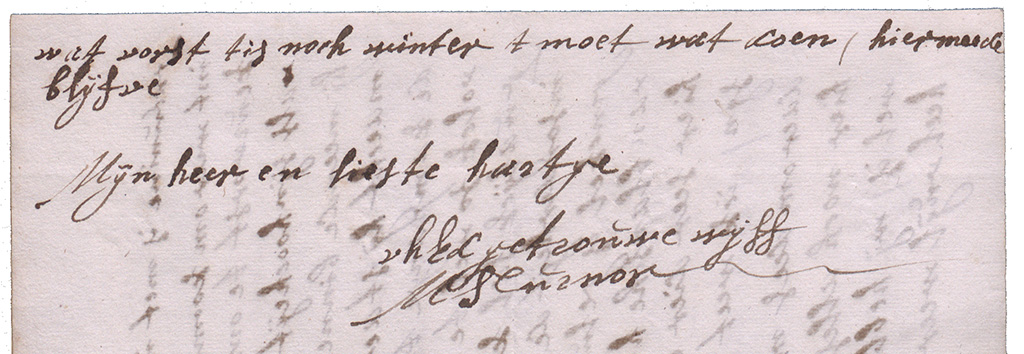 wat vorst tis noch winter t moet wat doen / hiermeede
blijfve
Mijn heer en lieste hartje
getrouwe wijff